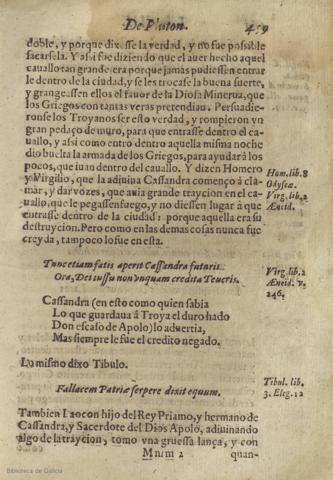 De Pluton. 459
doble, y porque dixesse la verdad, y no fue possible
sacarsela. Y assi fue diziendo que el auer hecho aquel
cauallo tan grande era porque jamas pudiessen entrar
le dentro de la ciudad, y se les trocase la buena suerte,
y grangeassen ellos el fauor de la Diosa Minerua, que
los Griegos con tantas veras pretendian. Persuadie-
ronse los Troyanos ser esto verdad, y rompieron vn
gran pedaço de muro, para que entrasse dentro el ca-
uallo, y assi como entro dentro aquella misma noche
dio buelta la armada de los Griegos, para ayudar a los
pocos, que iuan dentro del cauallo. Y dizen Homero
y Virgilio, que la adiuina Cassandra començò à cla-
mar, y dar vozes, que auia grande traycion en el ca-
uallo, que le pegassen fuego, y no diessen lugar à que
entrasse dentro de la ciudad: porque aquella era su
destruycion. Pero como en las demas cosas nunca fue
creyda, tampoco lo fue en esta.
Hom. lib. 8
Odyseæ.
Virg. lib. 2
Æneid.
Tunc etiam fatis aperit Cassandra futuris
Ora, Dei iussu non vnquam credita Teucris.
Virg. lib. 2
Æneid. v.
246.
Cassandra (en esto como quien sabia
Lo que guardaua à Troya el duro hado
Don escaso de Apolo) lo aduertia,
Mas siempre le fue el credito negado.
Lo mismo dixo Tibulo.
Fallacem Patriæ serpere dixit equum.
Tibul. lib.
3. Eleg. 12
Tambien Laocon hijo del Rey Priamo, y hermano de
Cassandra, y Sacerdote del Dios Apolo, adiuinando
algo de la traycion, tomo vna gruessa lança, y con
Mm 2 quan-
Biblioteca de Galicia